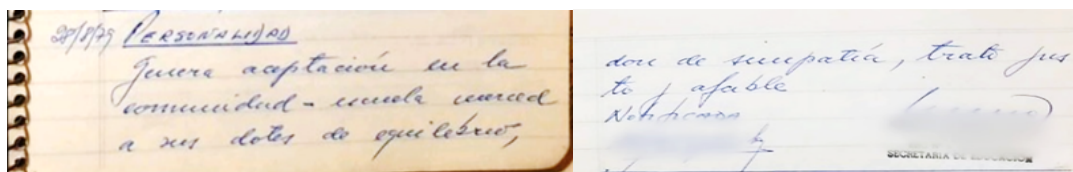 28/8/79 PERSONALIDAD
Genera aceptación en la
comunidad - escuela merced
a sus dotes de equilibrio,
don de simpatía, trato jus
to y afable
SECRETARIA DE EDUCACION